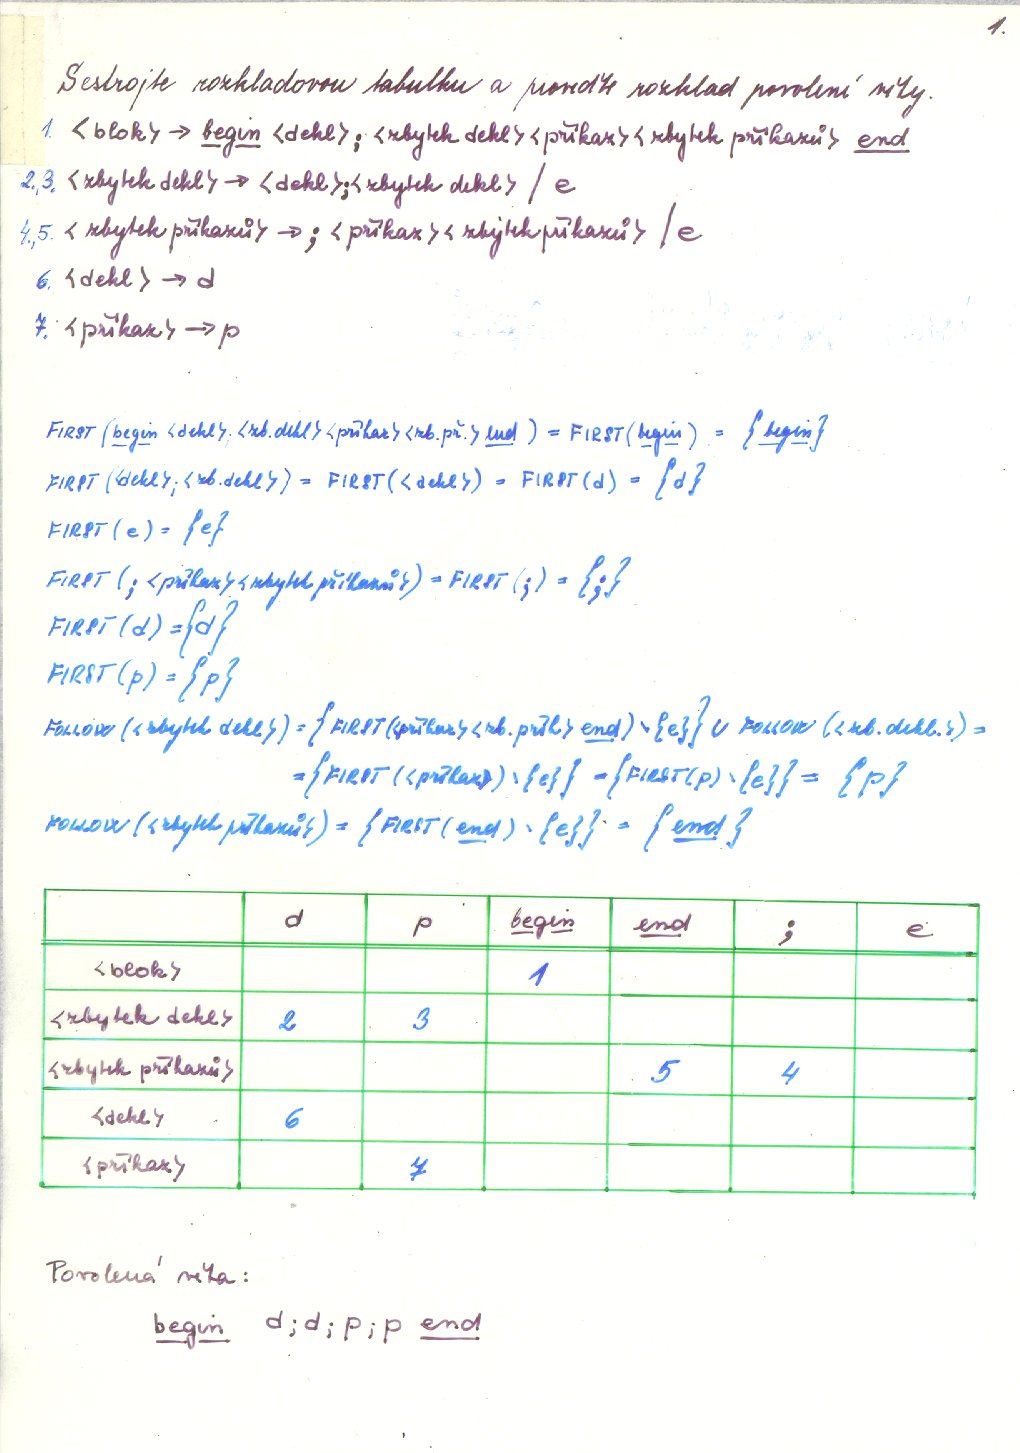 1.
Sestrojte rozkladovou tabulku a proveďte rozklad povolené věty.
1. <blok> → begin <dekl>; <zbytek dekl><příkaz><zbytek příkazů> end
2.,3. <zbytek dekl> → <dekl>;<zbytek dekl> / e
4.,5. <zbytek příkazů> → ; <příkaz><zbytek příkazů> / e
6. <dekl> → d
7. <příkaz> → p
FIRST (begin <dekl>; <zb.dekl><příkaz><zb.př.> end ) = FIRST(begin) = {begin}
FIRST (<dekl>; <zb.dekl>) = FIRST(<dekl>) = FIRST(d) = {d}
FIRST(e) = {e}
FIRST (; <příkaz><zbytek příkazů>) = FIRST(;) = {;}
FIRST(d) = {d}
FIRST(p) = {p}
FOLLOW (<zbytek dekl>) = {FIRST(<příkaz><zb.přík> end) \ {e}} ∪ FOLLOW (<zb.dekl.>) =
= {FIRST (<příkaz>) \ {e}} = {FIRST(p) \ {e}} = {p}
FOLLOW (<zbytek příkazů>) = {FIRST(end) \ {e}} = {end}
d p begin end ; e
<blok> 1
<zbytek dekl> 2 3
<zbytek příkazů> 5 4
<dekl> 6
<příkaz> 7
Povolená věta:
begin d;d;p;p end